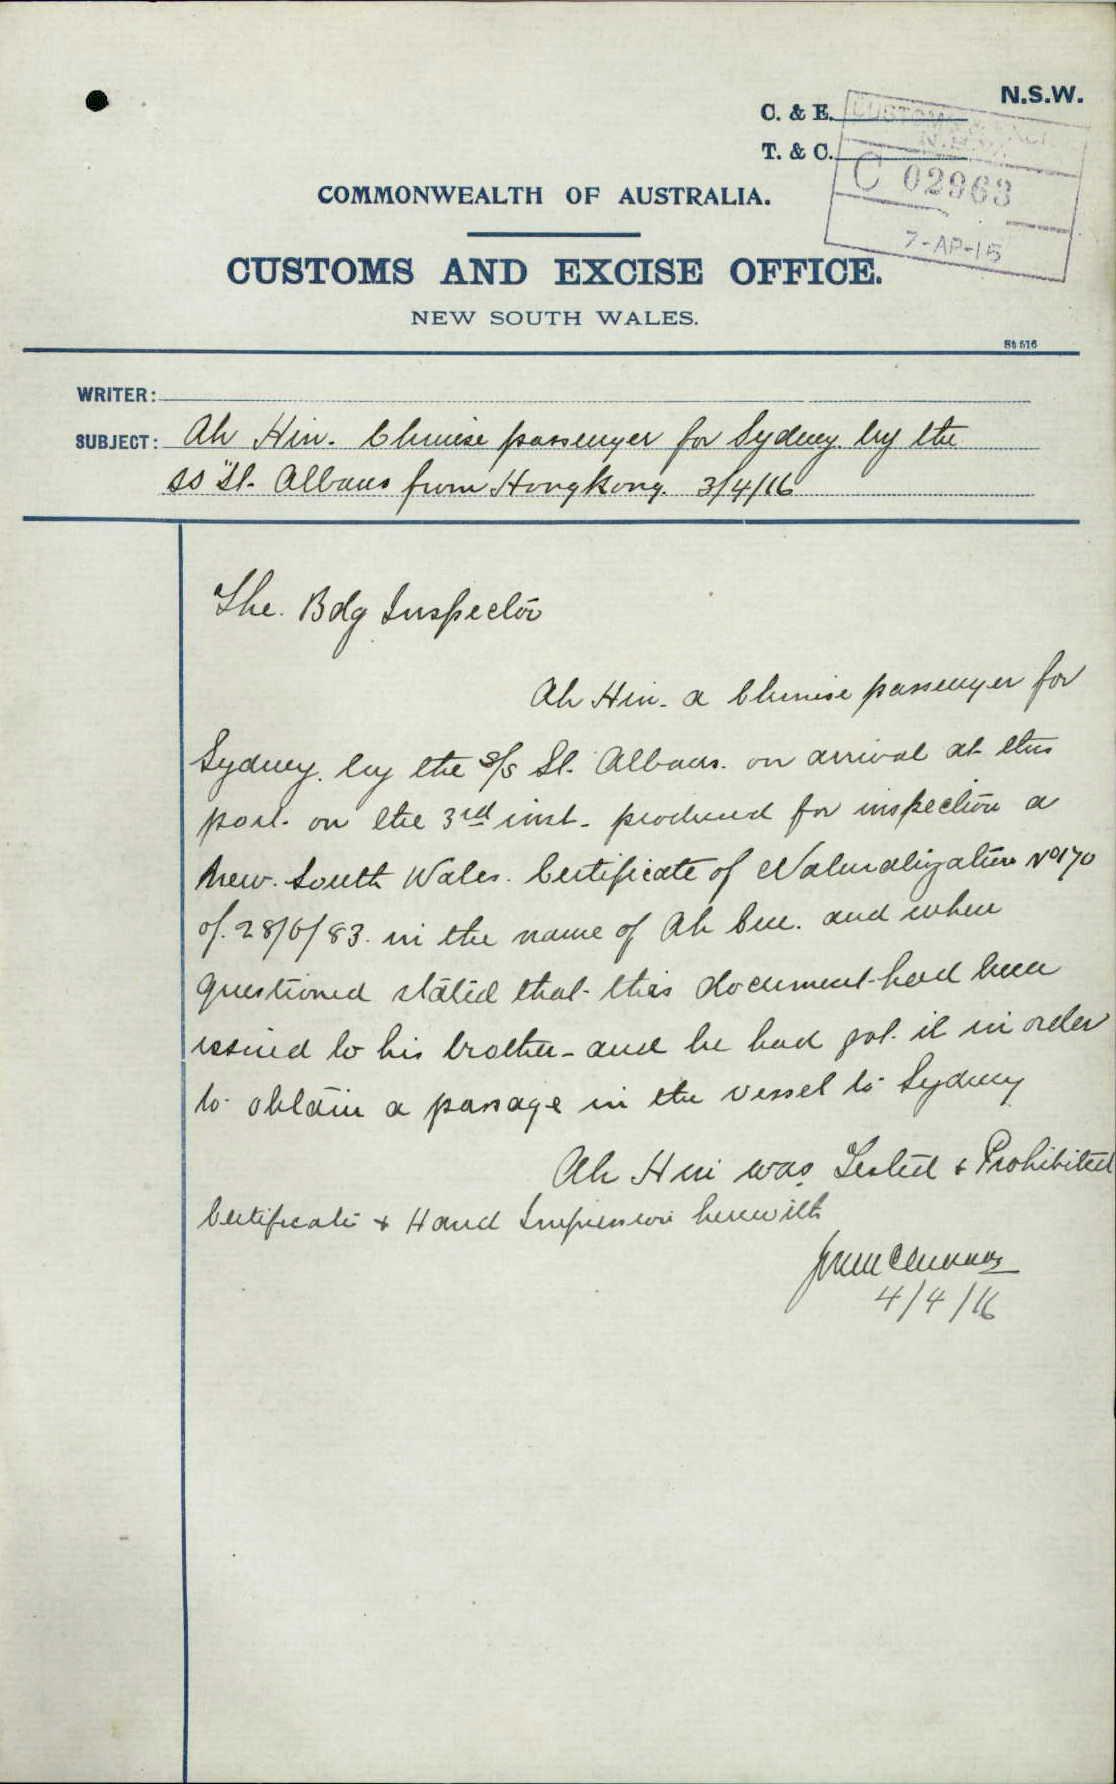 N.S.W.
C. & E.
T. & C.
CUSTOMS
N.S.W.
C 02963
7-AP-16
COMMONWEALTH OF AUSTRALIA.
CUSTOMS AND EXCISE OFFICE.
NEW SOUTH WALES.
WRITER:
SUBJECT: Ah Hin. Chinese passenger for Sydney by the
ss "St. Albans from Hongkong. 3/4/16
The. Bdg Inspector
Ah Hin. a Chinese passenger for
Sydney. by the s/s St. Albans. on arrival at this
port. on the 3rd inst. produced for inspection a
New. South Wales. Certificate of Naturalization No 170
of. 28/6/83. in the name of Ah and when
questioned stated that this document had been
issued to his brother - and he had got it in order
to obtain a passage in the vessel to Sydney
Ah Hin was Tested & Prohibited
Certificate & Hand Impression herewith
4/4/16